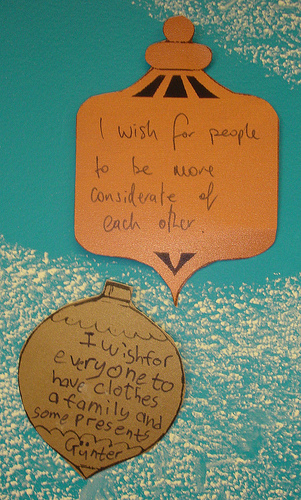 I wish for people
to be more
considerate of
each other.
I wish for
everyone to
have clothes
a family and
some presents
Günter